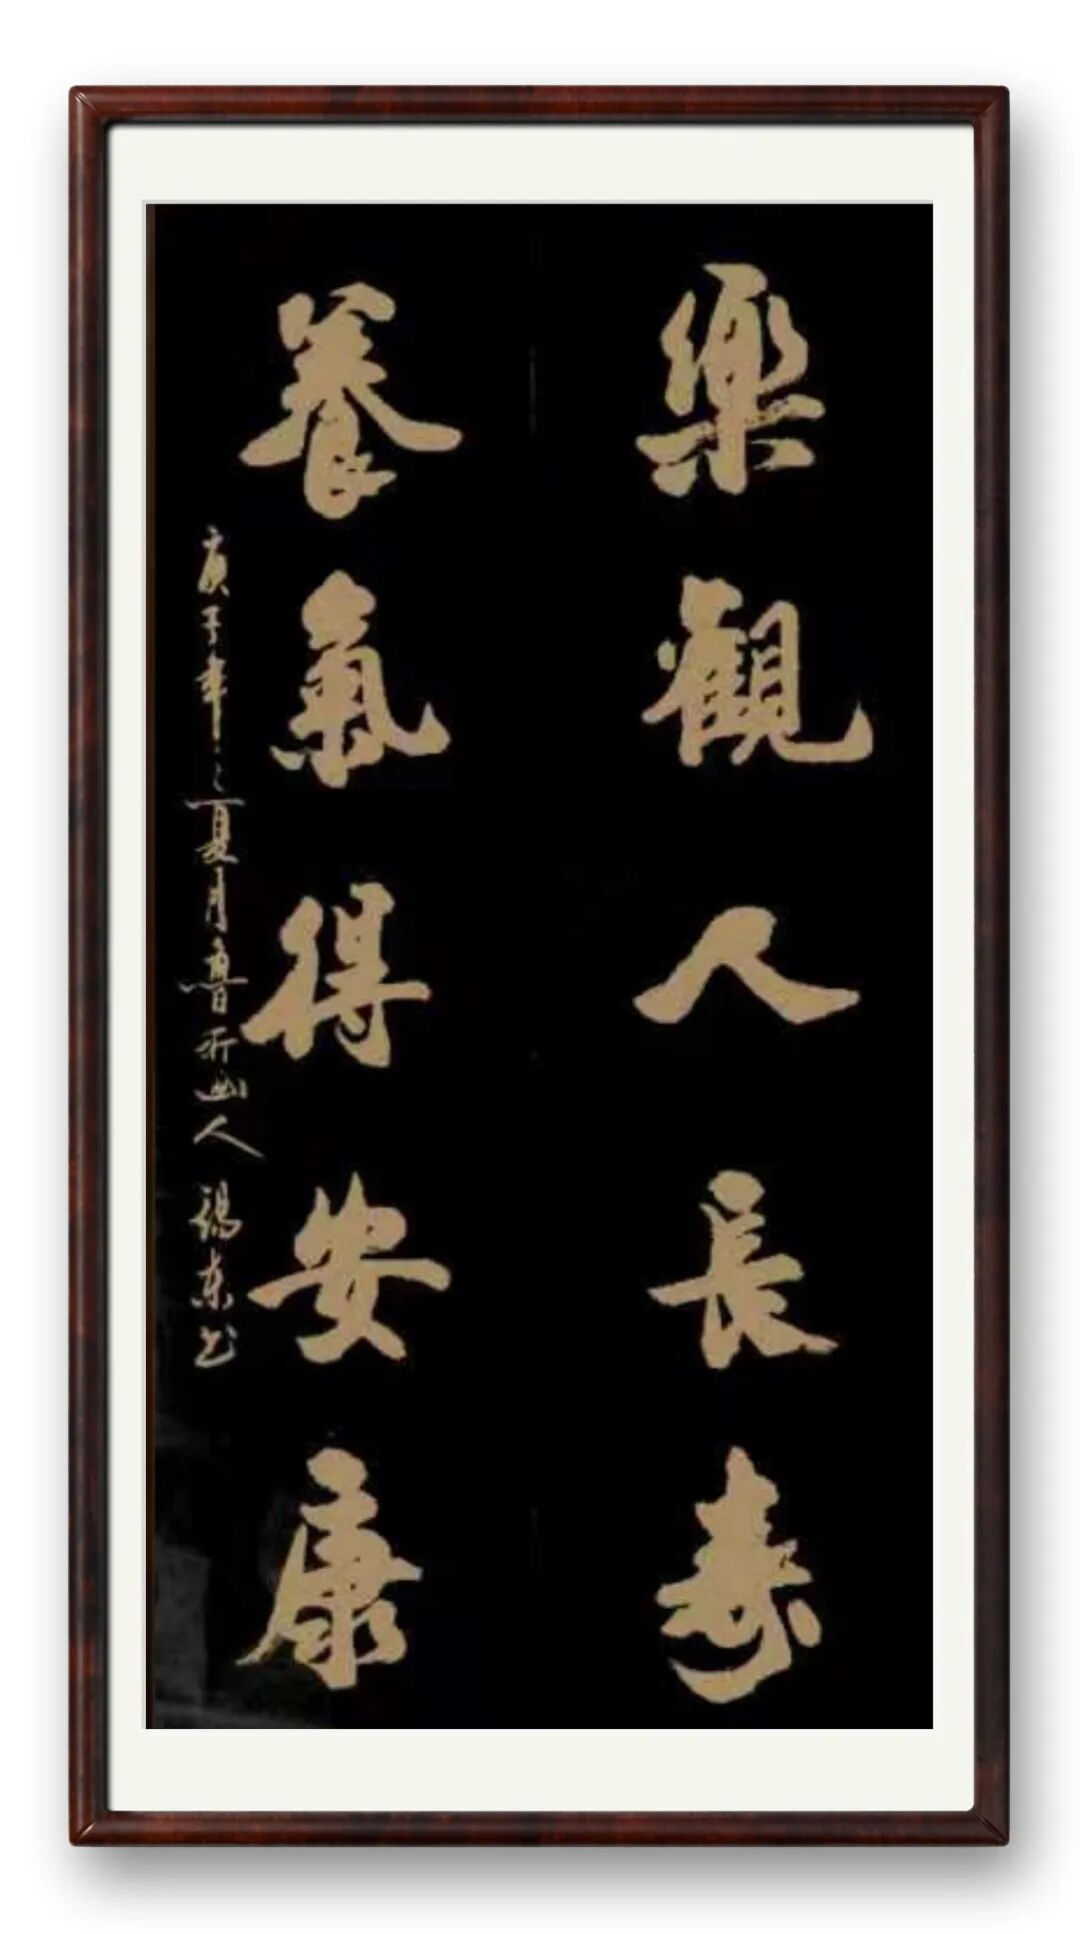 樂觀人長壽
養氣得安康
庚子年之夏月魯沂山人 錫東书